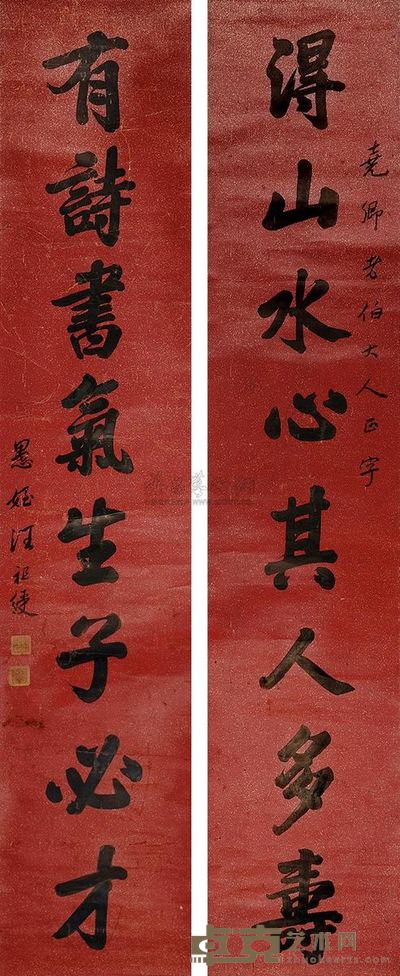 得山水心其人多壽
堯卿老伯大人正字
有詩書氣生子必才
愚姪汪祖綬